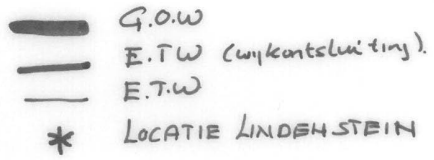 G.O.W
E.TW (wijkontsluiting).
E.T.W
* LOCATIE LINDENSTEIN